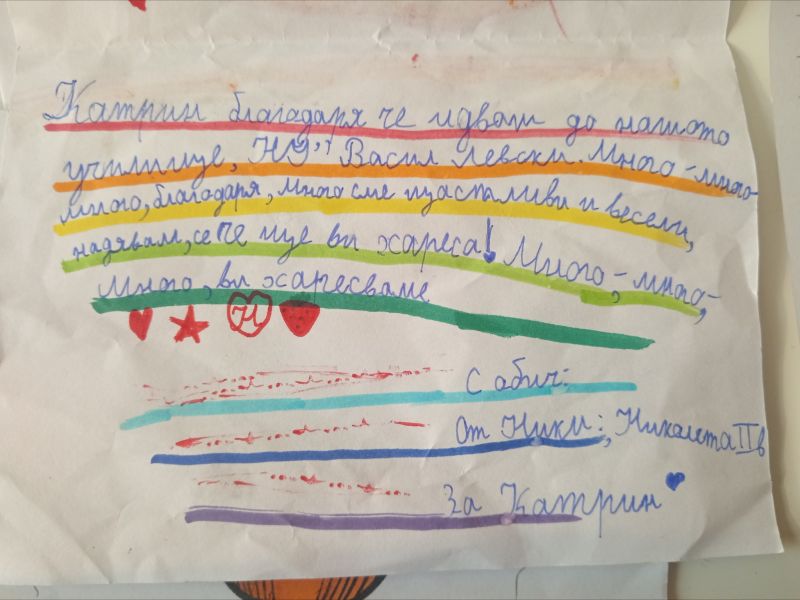 Катрин благодаря че идваш до нашото
училище, НУ" Васил Левски. Много-много-
много, благодаря, много сме щастливи и весели,
надявам, се че ще ви хареса! Много, много-,
много, ви харесваме
Н
С обич:
От Ники:, Николета II в
За Катрин